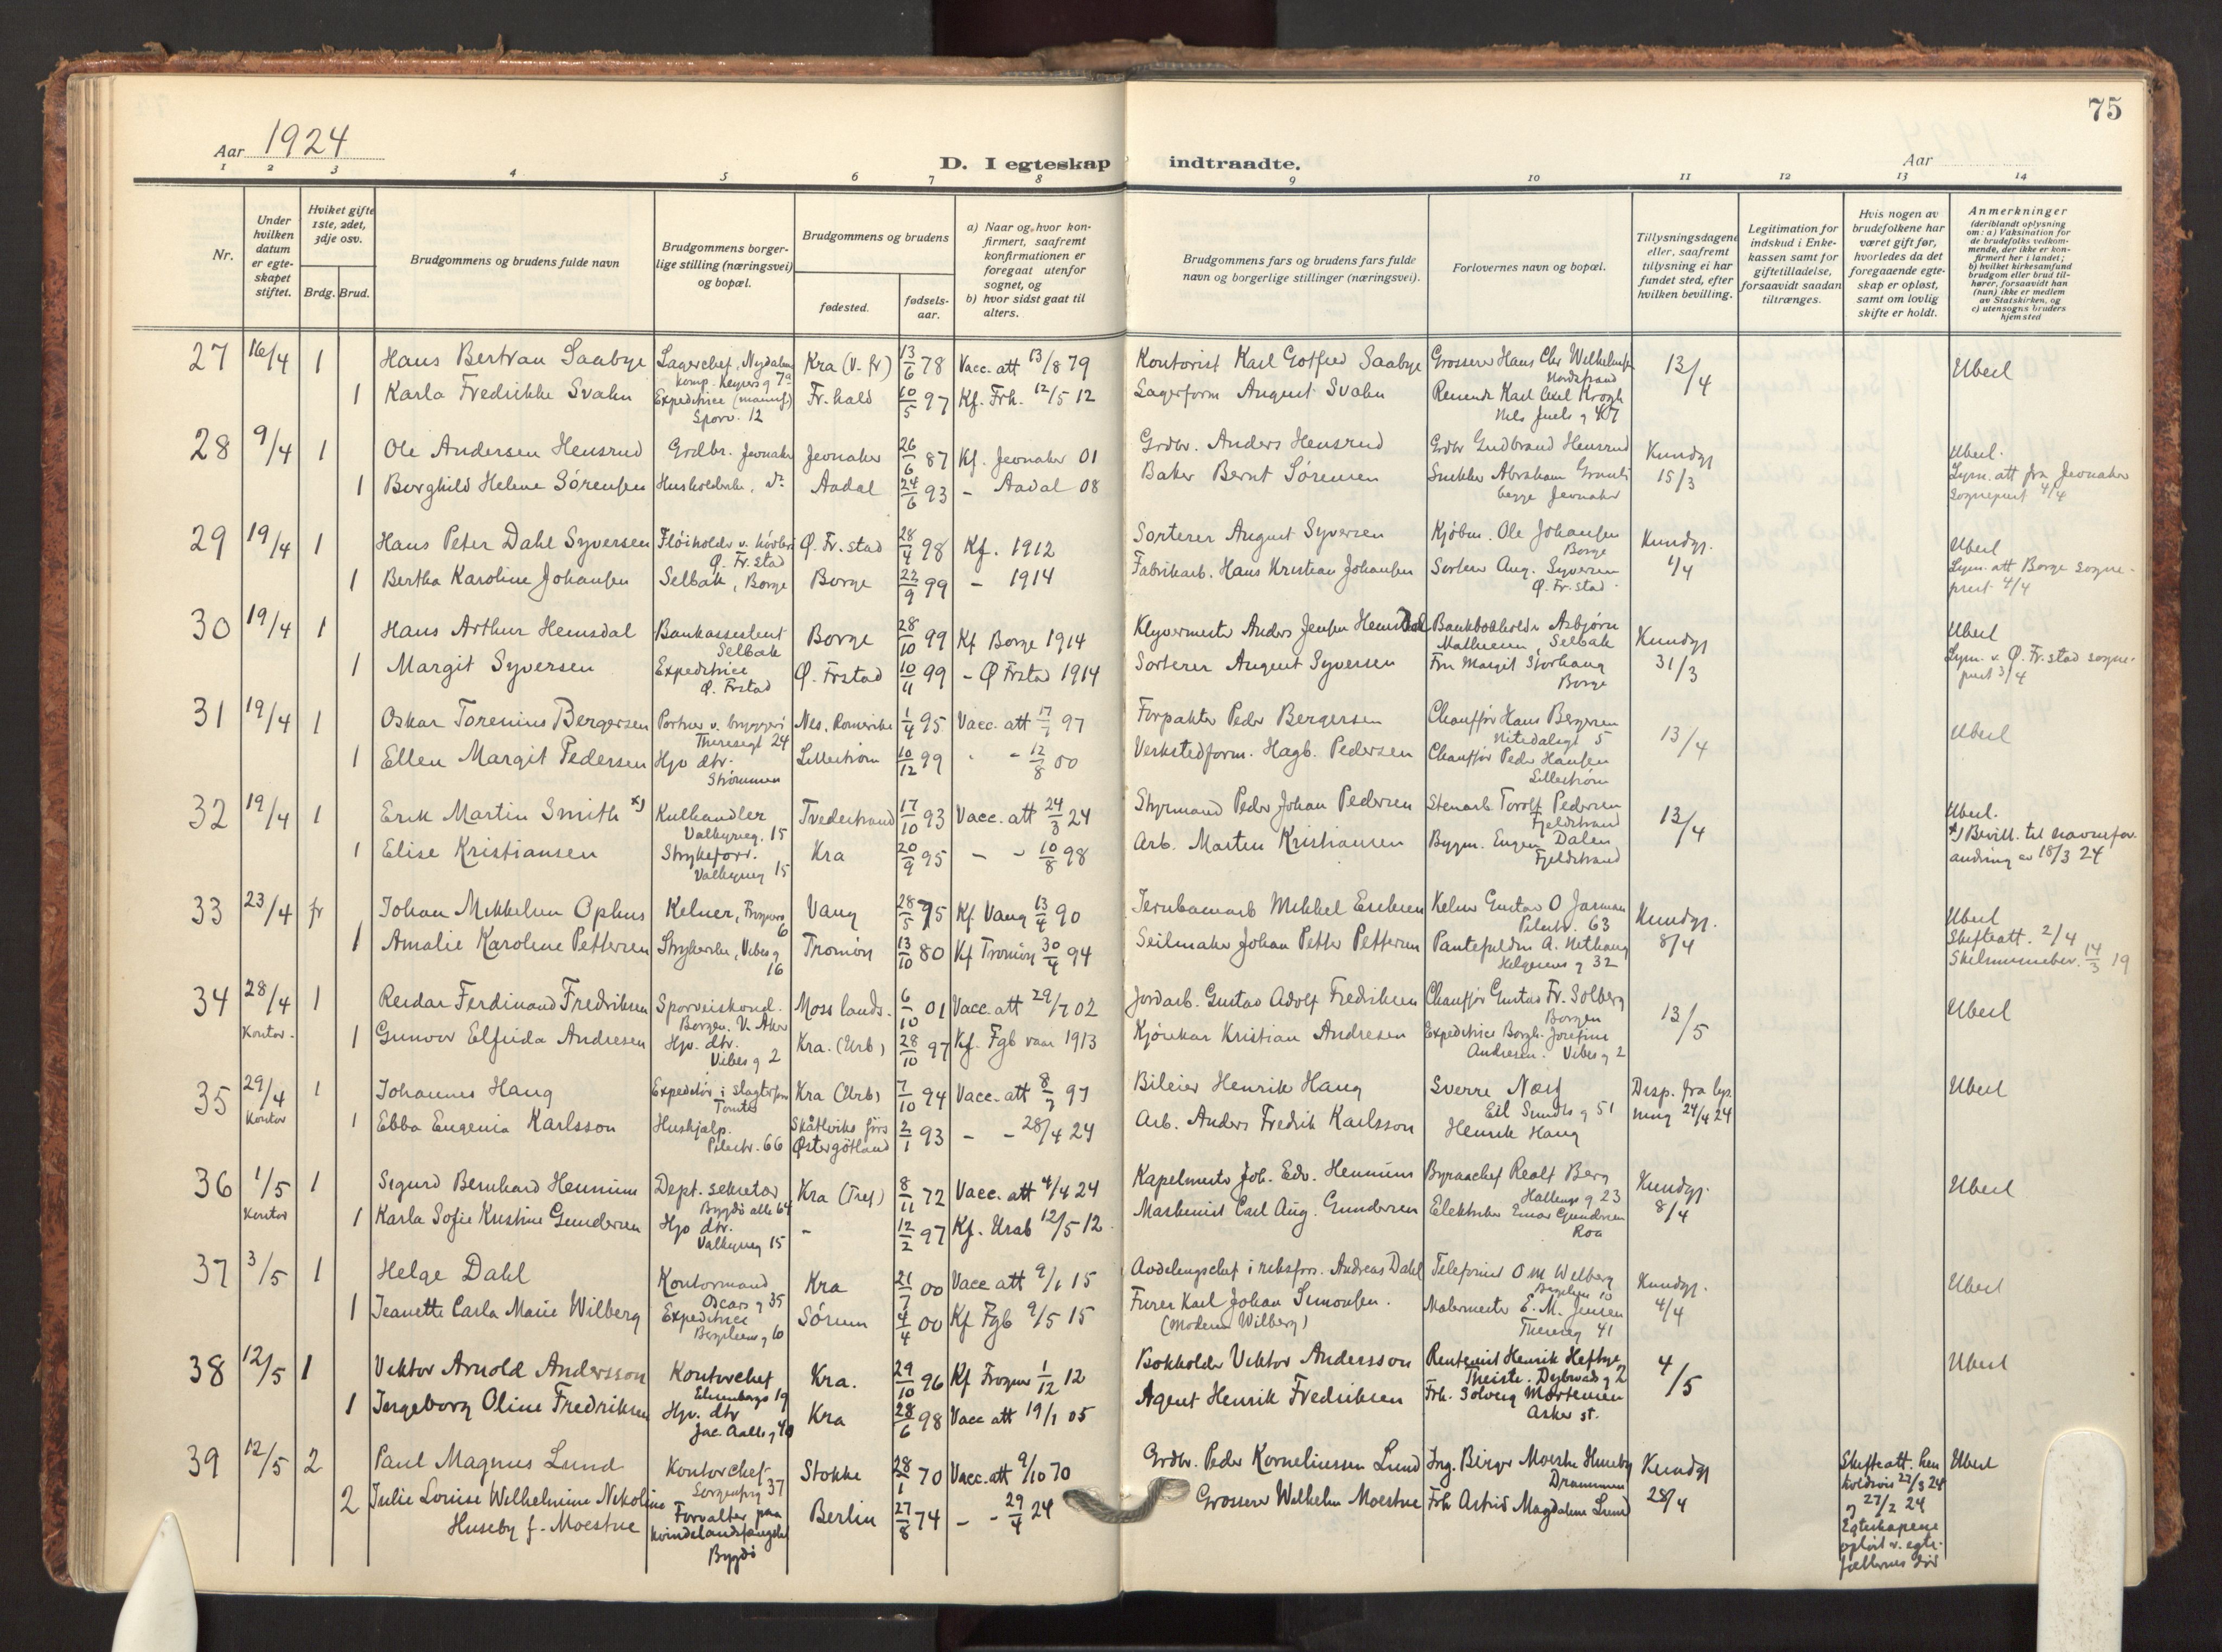 75
Aar 1924
D. I egteskap indtraadte.
Aar
1 2 3 4 5 6 7 8 9 10 11 12 13 14
Nr.
Under hvilken datum er egte-skapet stiftet.
Hviket gifte 1ste, 2det, 3dje osv.
Brdg. Brud.
Brudgommens og brudens fulde navn
Brudgommens borger-lige stilling (næringsvei) og bopæl.
Brudgommens og brudens
fødested.
fødsels-aar.
a) Naar og hvor kon-firmert, saafremt konfirmationen er foregaat utenfor sognet, og
b) hvor sidst gaat til alters.
Brudgommens fars og brudens fars fulde navn og borgerlige stillinger (næringsvei).
Forlovernes navn og bopæl.
Tillysningsdagene eller, saafremt tillysning ei har fundet sted, efter hvilken bevilling.
Legitimation for indskud i Enke-kassen samt for giftetilladelse, forsaavidt saadan tiltrænges.
Hvis nogen av brudefolkene har været gift før, hvorledes da det foregaaende egte-skap er opløst, samt om lovlig skifte er holdt.
Anmerkninger (deriblandt oplysning om: a) Vaksination for de brudefolks vedkom-mende, der ikke er kon-firmert her i landet; b) hvilket kirkesamfund brudgom eller brud til-hører, forsaavidt han (hun) ikke er medlem av Statskirken, og c) utensogns bruders hjemsted
27 16/4 1 Hans Bertran Saabye Lagerchef, Nydalens komp. Keysers g 7a Kra (V. fr) 13/6 78 Vacc. att 13/8 79 Kontorist Karl Gotfred Saabye Grosserer Hans Chr Wilhelmsen Nordstrand 13/4 Uberl
1 Karla Fredrikke Svahn Expeditrice (manuf) Sporv. 12 Fr.hald 10/5 97 Kf. Frh. 12/5 12 Lagerform August Svahn Karl Axel Krogh Nils Juels g 47
28 9/4 1 Ole Andersen Hensrud Grdbr. Jevnaker Jevnaker 26/6 87 Kf. Jevnaker 01 Grdbr. Anders Hensrud Grdbr Gudbrand Hensrud Kundgj 15/3 Uberl.
1 Borghild Helene Sørensen Husholderske, do Aadal 24/6 93 - Aadal 08 Baker Bernt Sørensen Snekker Abraham begge Jevnaker Lysn. att fra Jevnaker sogneprest 4/4
29 19/4 1 Hans Peter Dahl Syversen Ø. Fr.stad Ø. Fr.stad 28/4 98 Kf. 1912 Sorterer August Syversen Kjøbm. Ole Johansen Borge Kundgj. 1/4 Uberl
1 Bertha Karoline Johansen Selbak, Borge Borge 22/9 99 - 1914 Fabrikarb. Hans Kristian Johansen Sorterer Aug. Syversen Ø. Fr.stad Lysn. att Borge sogne-prest 4/4
30 19/4 1 Hans Arthur Hemsdal Bankassistent Selbak Borge 28/10 99 Kf Borge 1914 Klyvermester Anders Jensen Hemsdal Bankbokholder Asbjørn Mathiesen, Selbak Kundgj 31/3 Uberl
1 Margit Syversen Expeditrice Ø. Frstad Ø. Frstad 10/11 99 - Ø Frstad 1914 Sorterer August Syversen Fru Margit Storhaug Borge Lysn. v. Ø. Fr.stad sogne-prest 3/4
31 19/4 1 Oskar Torenius Bergersen Portner v. bryggeri Theresesgt 24 Nes, Romerike 1/4 95 Vacc. att 17/7 97 Forpakter Peder Bergersen Chauffør Hans Bergersen Nitedalsgt 5 13/4 Uberl
1 Ellen Margit Pedersen Hjv dtr. Strømmen Lillestrøm 10/12 99 - - 12/8 00 Verkstedform. Hagb. Pedersen Chauffør Peder Hansen Lillestrøm
32 19/4 1 Erik Martin Smith x) Kulhandler Valkyrieg. 15 Tvedestrand 17/10 93 Vacc. att 24/3 24 Styrmand Peder Johan Pedersen Stenarb. Torolf Pedersen Fjeldstrand 13/4 Uberl.
1 Elise Kristiansen Strykeforr. Valkyrieg 15 Kra 20/9 95 - - 10/8 98 Arb. Martin Kristiansen Bygm. Eugen Dalen Fjeldstrand x) Bevill. til navnefor-andring av 18/3 24
33 23/4 fr Johan Mikkelsen Ophus Kelner, 6 Vang 28/5 75 Kf Vang 13/4 90 Jernbanearb Mikkel Eriksen Kelner Gustav O Jarman Pilestr. 63 Kundgj. 8/4 Uberl
1 Amalie Karoline Pettersen Strykerske, Vibesg 16 Tromøy 13/10 80 Kf Tromøy 30/4 94 Seilmaker Johan Petter Pettersen A. Nethaug Helgesens g 32 Skifteatt. 2/4 Skilsmissebev. 14/3 19
34 28/4 Kontor. 1 Reidar Ferdinand Fredriksen Sporveiskond. Borgen, V. Aker Moss lands. 6/10 01 Vacc. att 29/7 02 Jordarb. Gustav Adolf Fredriksen Chauffør Gustav Fr. Solberg Borgen 13/5 Uberl
1 Gunvor Elfrida Andresen Hjv. dtr. Vibes g 2 Kra. (Urb) 28/10 97 Kf. Fgb vaar 1913 Kjørekar Kristian Andresen Expeditrice Borgh. Josefine Andresen. Vibes g 2
35 29/4 Kontor 1 Johannes Haug Expeditør i slagterforr Tomter Kra (Urb) 7/10 94 Vacc. att 8/7 97 Bileier Henrik Haug Sverre Næss Eil Sundts g 51 Disp. fra lys-ning 24/4 24 Uberl
1 Ebba Eugenia Karlsson Hushjælp. Pilestr. 66 Skåtlviks førs Østergötland 2/1 93 - - 28/4 24 Arb. Anders Fredrik Karlsson Henrik Haug
36 1/5 Kontor 1 Sigurd Bernhard Hennum Dept. sekretær Bygdø alle 64 Kra (Tref) 8/11 72 Vacc. att 4/4 24 Kapelmester Joh. Edv. Hennum Byraachef Realf Berg Hallings g 23 Kundgj. 8/4 Uberl
1 Karla Sofie Kristine Gundersen Hjv dtr. Valkyrieg 15 - 12/2 97 Kf. Urab 12/5 12. Maskinist Carl Aug. Gundersen Elektriker Einar Gundersen Roa
37 3/5 1 Helge Dahl Kontormand Oscars g 35 Kra 21/7 00 Vacc att 9/1 15 Avdelingschef i riksfors. Andreas Dahl Telefonist O M Wilberg Bergslien 10 Kundgj. 4/4 Uberl
1 Jeanette Carla Marie Wilberg Expeditrice Bergsliens g 10 Sørum 4/4 00 Kf Fgb 9/5 15 Furer Karl Johan Simonsen. (Moderen Wilberg) Malermester E. M. Jensen Theresesg 41
38 12/5 1 Viktor Arnold Andersson Kontorchef Eilersundsg 19 Kra. 29/10 96 Kf Frogner 1/12 12 Bokholder Viktor Andersson Rentenist Henrik Heftye Theiste. Dybwads g 2 4/5 Uberl
1 Ingeborg Oline Fredriksen Hjv. dtr Jac. Aalls g 40 Kra 28/6 98 Vacc att 19/1 05 Agent Henrik Fredriksen Frk. Solveig Mortensen Asker st.
39 12/5 2 Paul Magnus Lund Kontorchef Sorgenfrig 37 Stokke 28/1 70 Vacc. att 9/10 70 Grdbr. Peder Korneliussen Lund Ing. Birger Moestue Huseby Drammen Kundgj 28/4 Skifteatt. hen-holdsvis 27/3 24 og 27/2 24 Egteskapene opløst v. egte-fællernes død Uberl
2 Julie Louise Wilhelmine Nikoline Huseby f. Moestue Forvalter paa kvindelandsfængslet Bygdø Berlin 27/8 74 - - 29/4 24 Grosserer Wilhelm Moestue Frk Astrid Magdalene Lund